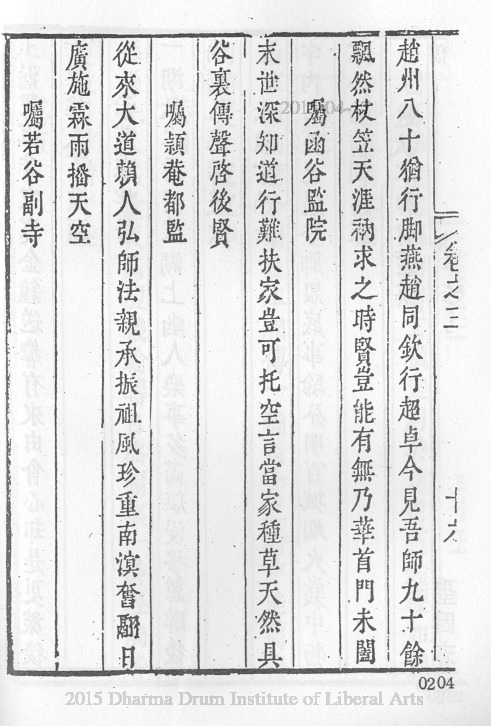 趙州八十猶行脚燕趙同欽行超卓今見吾師九十餘
飄然杖笠天涯衲求之時賢豈能有無乃華首門未闔
囑函谷監院
末世深知道行難扶家豈可托空言當家種草天然具
谷裏傳聲啓後賢
囑頴菴都監
從來大道頼人弘師法親承振祖風珍重南溟奮翮日
廣施霖雨播天空
囑若谷副寺
卷之三
十六
0204
2015 Dharma Drum Institute of Liberal Arts